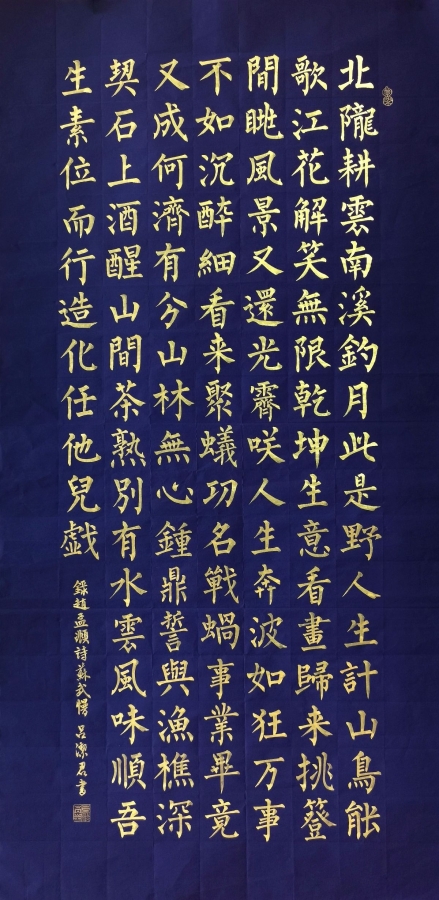 北隴耕雲南溪釣月此是野人生計山鳥能
歌江花解笑無限乾坤生意看畫歸来挑簦
閒眺風景又還光霽咲人生奔波如狂万事
不如沉醉細看来聚蟻功名戰蝸事業畢竟
又成何濟有分山林無心鍾鼎誓與漁樵深
契石上酒醒山間茶熟別有水雲風味順吾
生素位而行造化任他兒戲
錄趙孟頫詩蘇武慢 吕潔君書